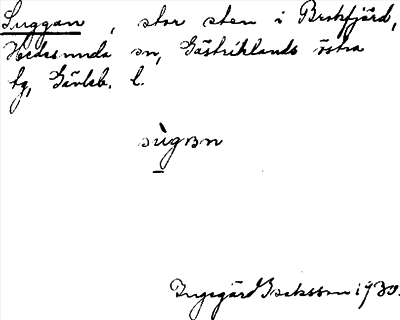 Suggan, stor sten i Brukfjärd,
Hedesunda sn, Gästriklands östra
tg, Gävleb. l.
sùgan
Ingegärd Isaksson 1930.